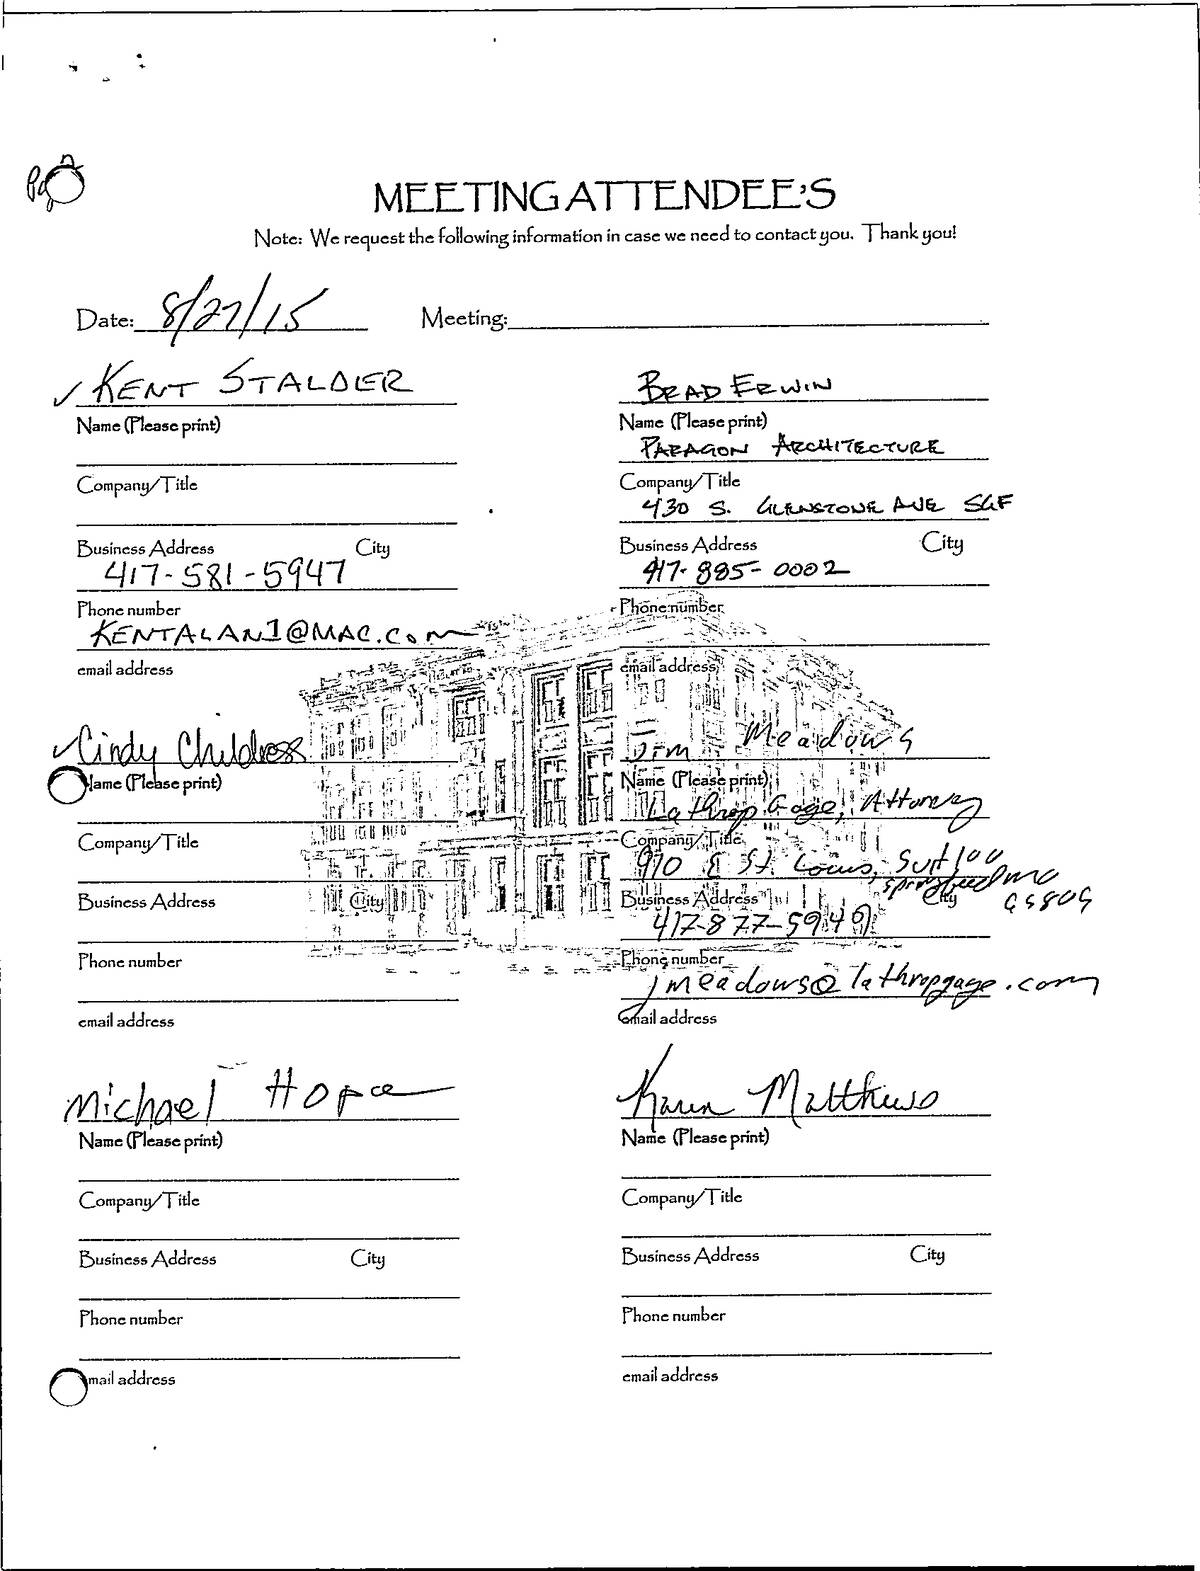 Pg 2
MEETING ATTENDEE'S
Note: We request the following information in case we need to contact you. Thank you!
Date: 8/27/15 Meeting:
✓ KENT STALDER
Name (Please print)
Company/Title
Business Address City
417-581-5947
Phone number
KENTALAN1@MAC.COM
email address
BRAD ERWIN
Name (Please print)
PARAGON ARCHITECTURE
Company/Title
430 S. GLENSTONE AVE SGF
Business Address City
417-885-0002
Phone number
email address
✓ Cindy Childress
Name (Please print)
Company/Title
Business Address City
Phone number
email address
Jim Meadows
Name (Please print)
Lathrop Gage, Attorney
Company/Title
910 E St. Louis, Suit 100
Springfield mo
65809
Business Address City
417-877-5949
Phone number
jmeadows@lathropgage.com
email address
Michael Hope
Name (Please print)
Company/Title
Business Address City
Phone number
email address
Karen Matthews
Name (Please print)
Company/Title
Business Address City
Phone number
email address